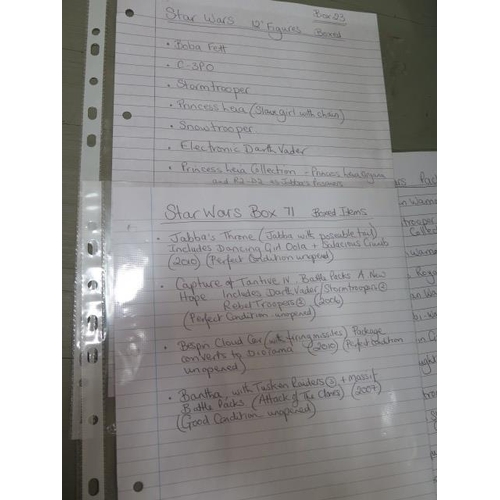 Star Wars 12" Figures Boxed Box 23
• Boba Fett
• C-3PO
• Stormtrooper
• Princess Leia (Slave girl with chain)
• Snowtrooper
• Electronic Darth Vader
• Princess Leia Collection - Princess Leia Organa
and R2-D2 as Jabba's Prisoners
Star Wars Box 71 Boxed Items
• Jabba's Throne (Jabba with poseable tail)
Includes Dancing Girl Oola + Salacious Crumb
(2010) (Perfect Condition unopened)
• Capture of Tantive IV Battle Packs A New
Hope Includes Darth Vader / Stormtroopers ②
Rebel Troopers ② (2006)
(Perfect Condition - unopened)
• Bespin Cloud Car (with firing missiles) Package
converts to Diorama (2010) (Perfect Condition
unopened)
• Bantha with Tusken Raiders ② + Massif
Battle Packs (Attack of The Clones) (2007)
(Good Condition unopened)